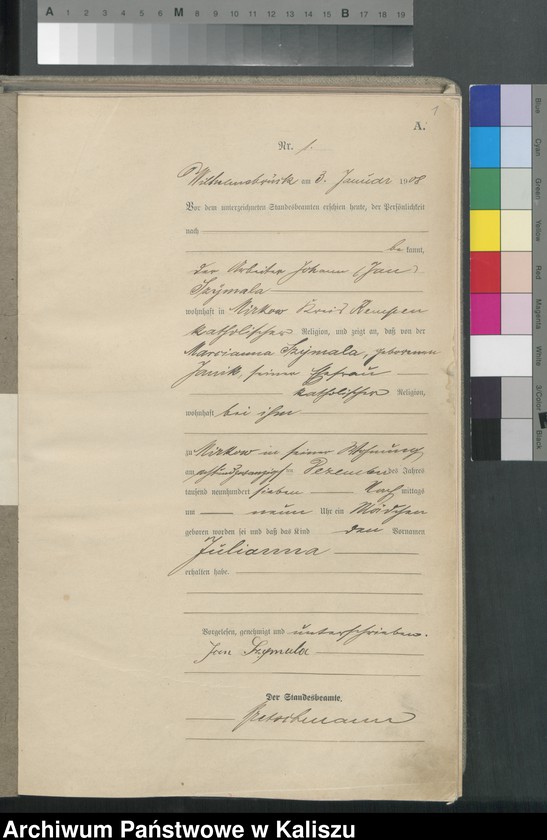 A 1 2 3 4 5 6 M 8 9 10 11 12 13 14 15 B 17 18 19
1
A.
Nr. 1.
Wilhelmsbrück am 3. Januar 1908
Vor dem unterzeichneten Standesbeamten erschien heute, der Persönlichkeit
nach
be kannt,
der Arbeiter Johann (Jan)
Szymala
wohnhaft in Mirkow Kreis Kempen
katholischer Religion, und zeigt an, daß von der
Marcianna Szymala, geborenen
Janik, seiner Ehefrau
katholischer Religion,
wohnhaft bei ihm
zu Mirkow in seiner Wohnung
am achtundzwanzigsten Dezember des Jahres
tausend neunhundert sieben Nach mittags
um neun Uhr ein Mädchen
geboren worden sei und daß das Kind den Vornamen
Julianna
erhalten habe.
Vorgelesen, genehmigt und unterschrieben.
Jan Szymala
Der Standesbeamte.
Blue
Cyan
Green
Yellow
Red
Magenta
White
3/Color
Black
Archiwum Państwowe w Kaliszu